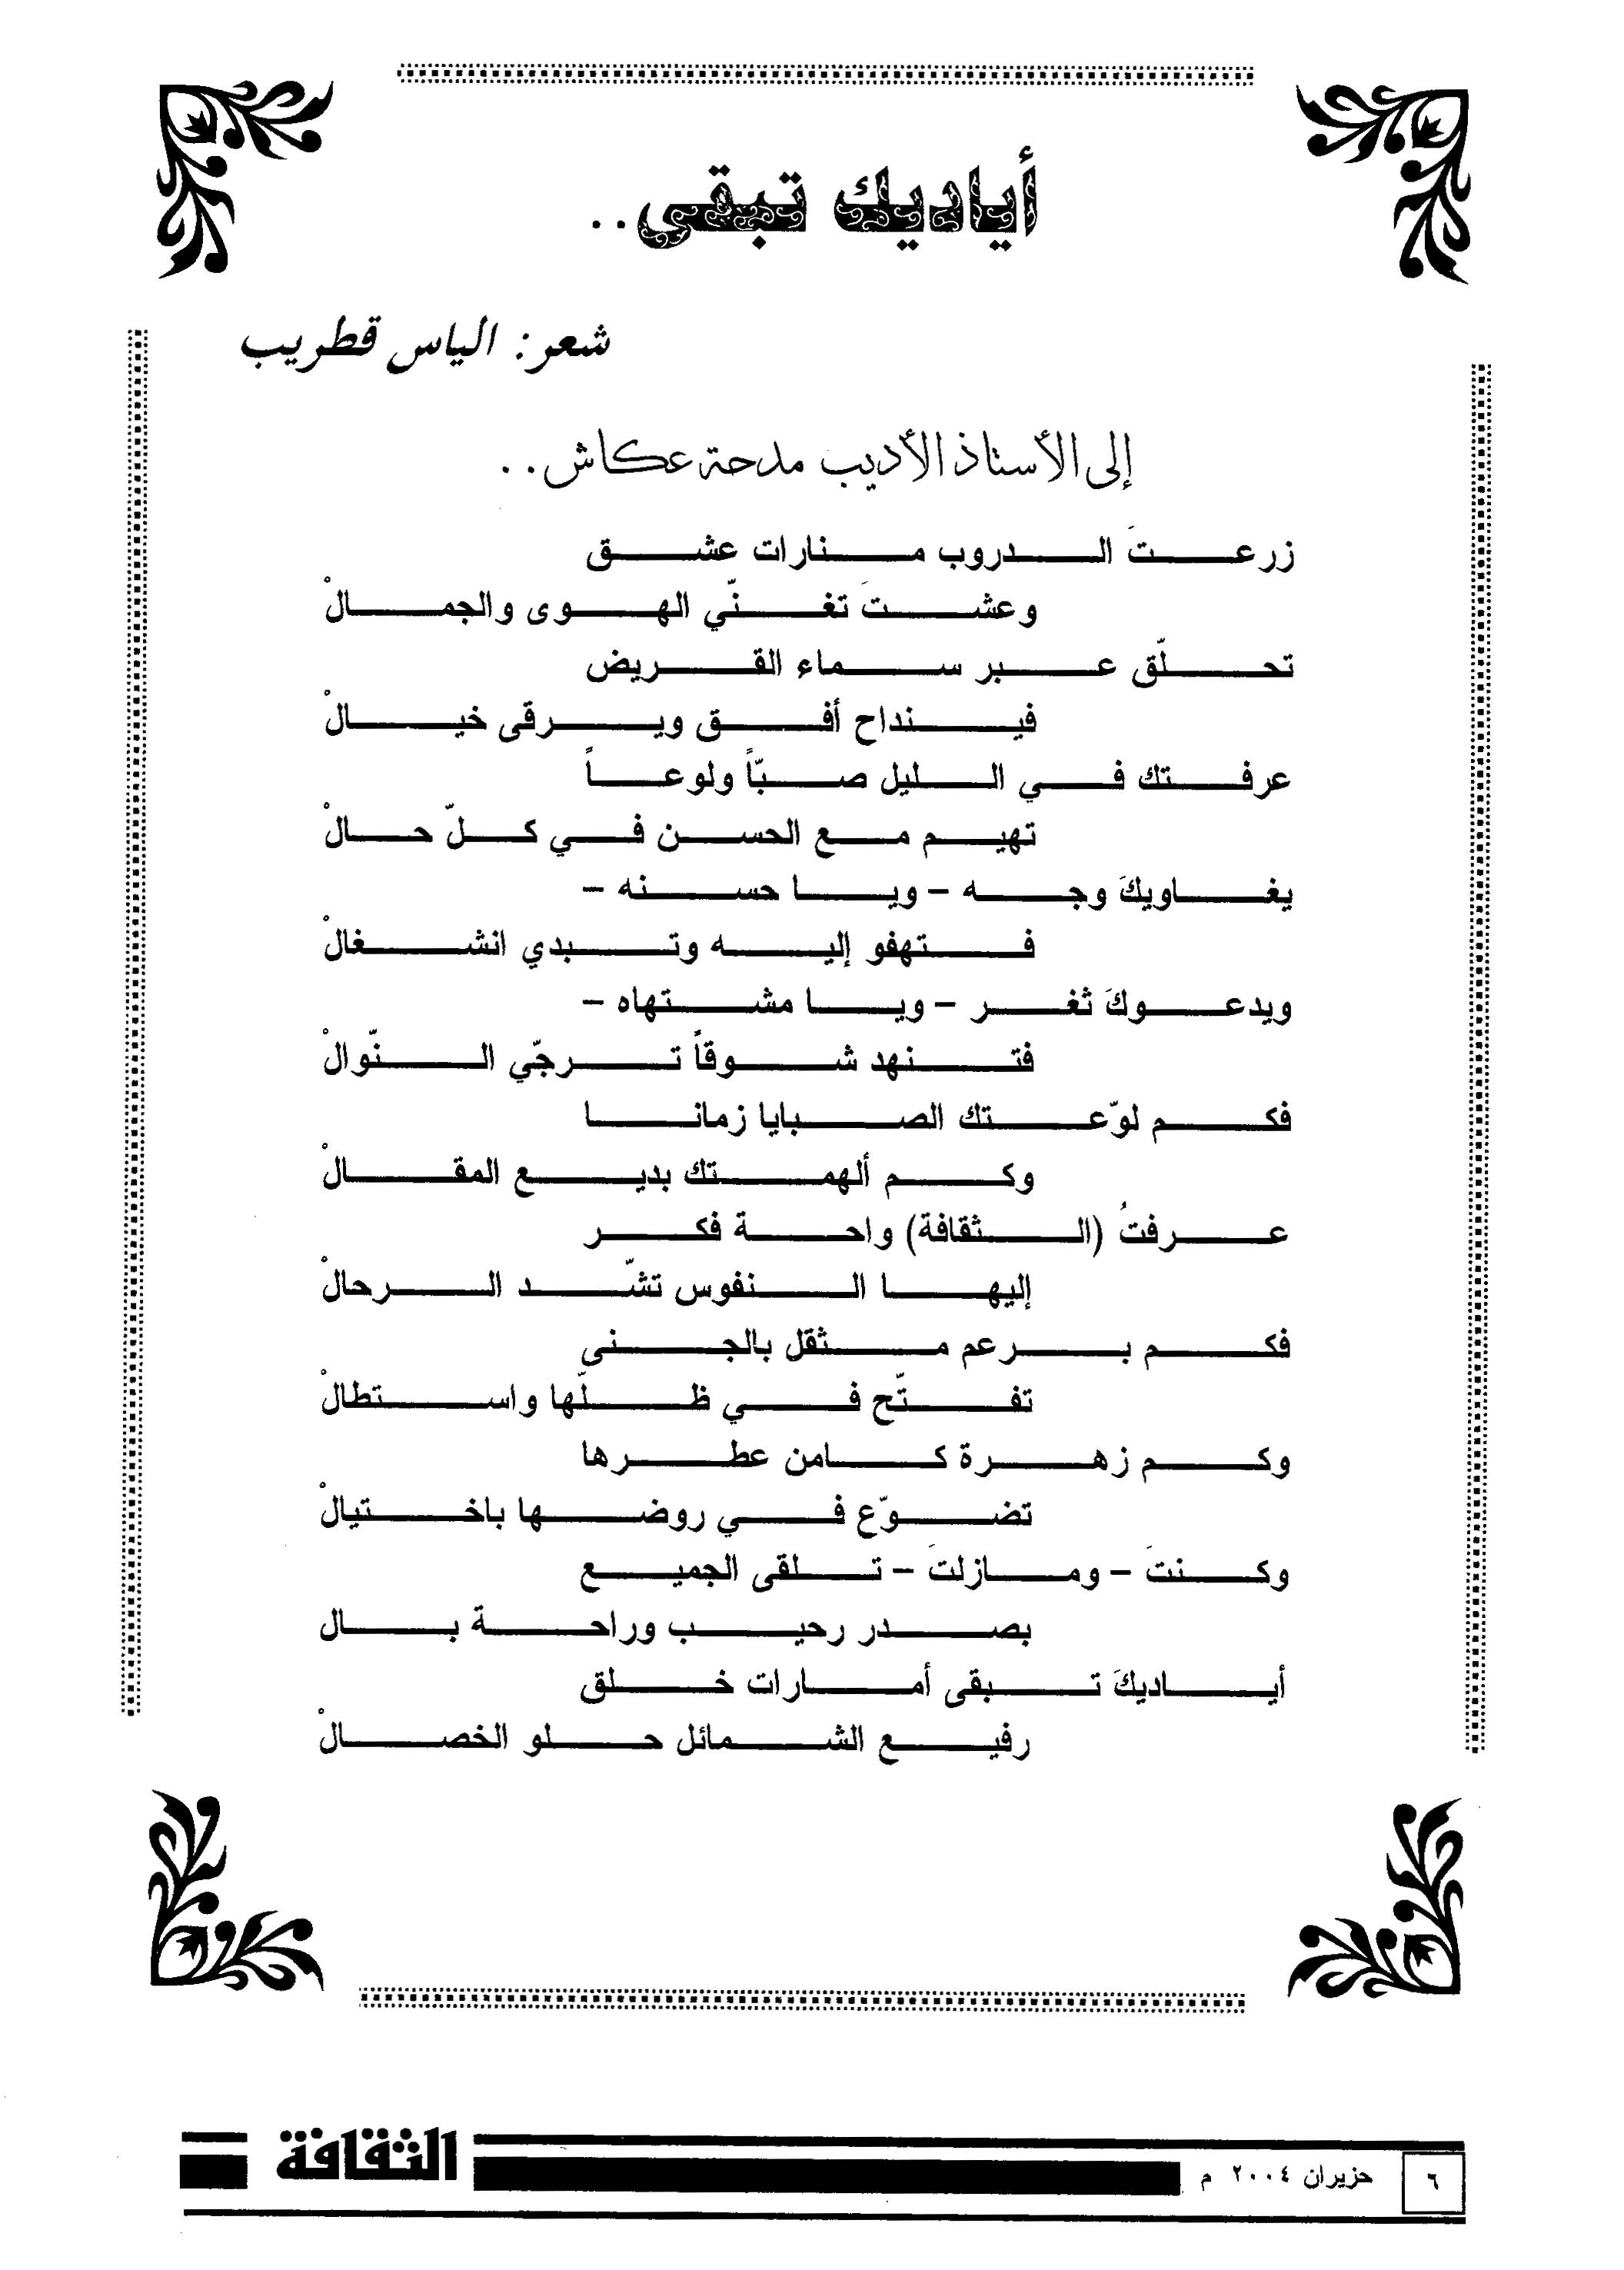 أياديك تبقى..
شعر: الياس قطريب
إلى الأستاذ الأديب مدحة عكاش..
زرعتَ الدروب منارات عشق
وعشتَ تغنّي الهوى والجمالْ
تحلّق عبر سماء القريض
فينداح أفق ويرقى خيالْ
عرفتك في الليل صبّاً ولوعاً
تهيم مع الحسن في كلّ حالْ
يغاويكَ وجه – ويا حسنه –
فتهفو إليه وتبدي انشغالْ
ويدعوكَ ثغر – ويا مشتهاه –
فتنهد شوقاً ترجّي النّوالْ
فكم لوّعتك الصبايا زمانا
وكم ألهمتك بديع المقالْ
عرفتُ (الثقافة) واحة فكر
إليها النفوس تشّد الرحالْ
فكم برعم مثقل بالجنى
تفتّح في ظلّها واستطالْ
وكم زهرة كامن عطرها
تضوّع في روضها باختيالْ
وكنتَ – ومازلتَ – تلقى الجميع
بصدر رحيب وراحة بال
أياديكَ تبقى أمارات خلق
رفيع الشمائل حلو الخصالْ
الثقافة
حزيران ٢٠٠٤ م
٦